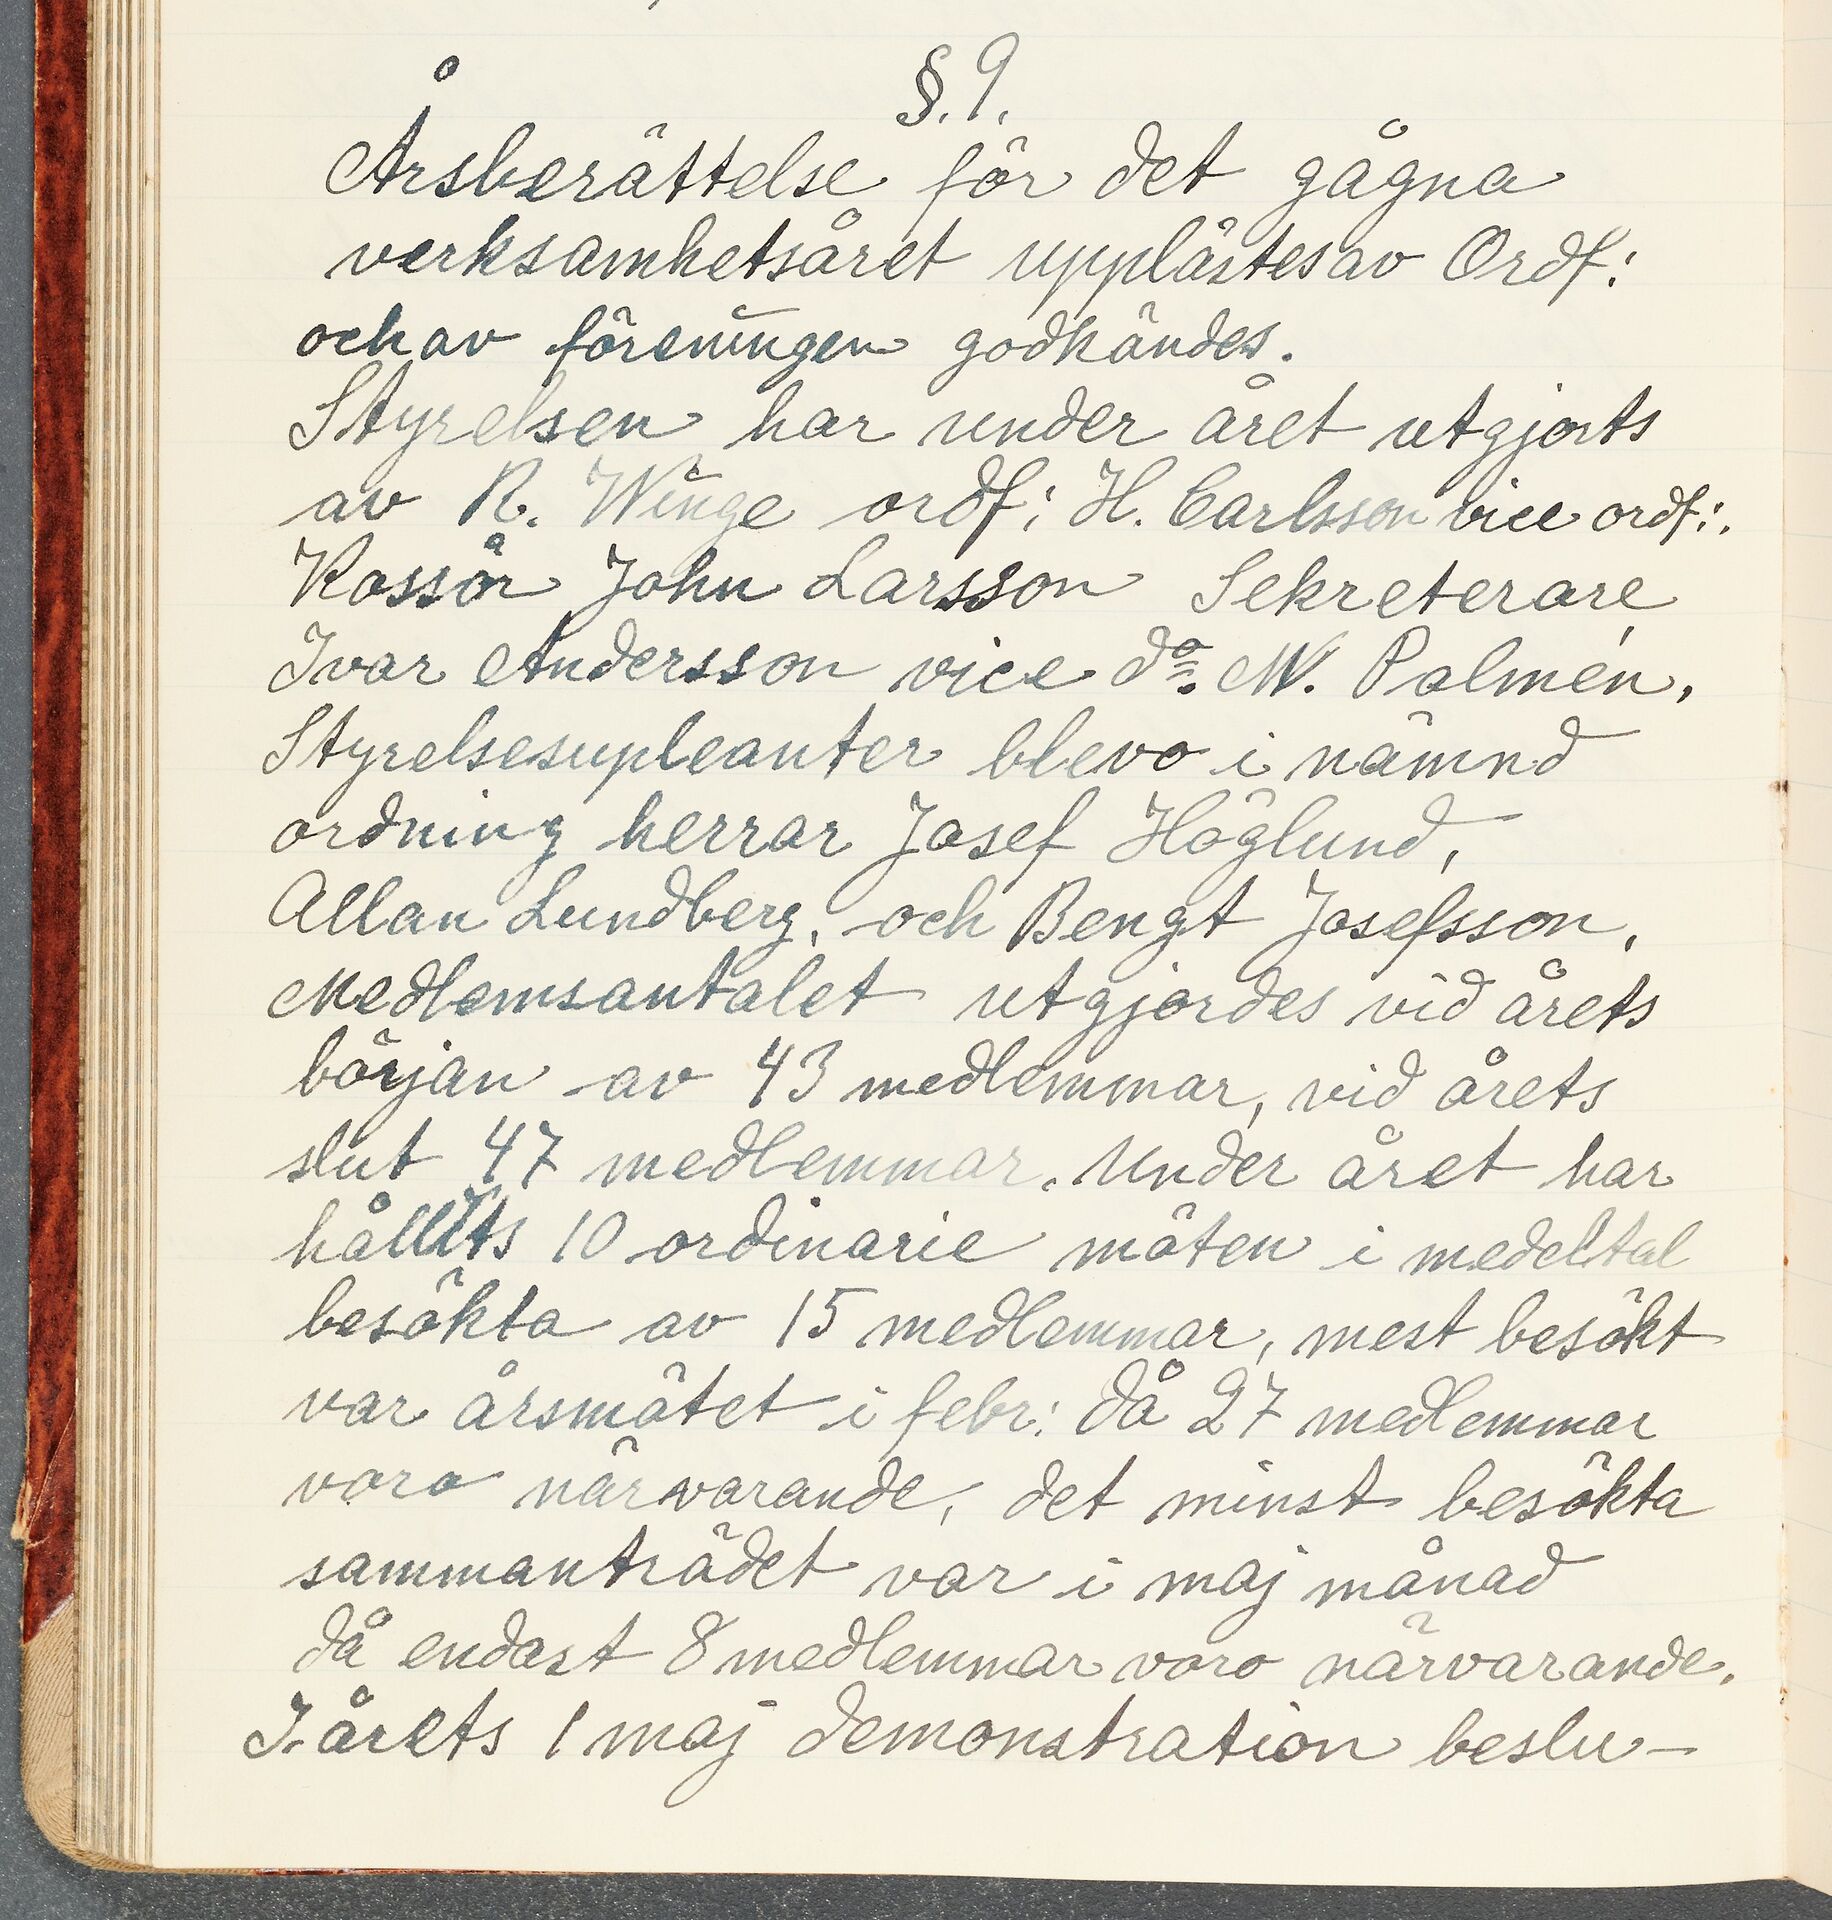 §. 9.
Årsberättelse för det gågna
verksamhetsåret upplästes av Ordf:
och av föreningen godkändes.
Styrelsen har under året utgjorts
av R. Winge ordf: H. Carlsson vice ordf:.
Kassör John Larsson Sekreterare,
Ivar Andersson vice do. M. Palmén,
Styrelsesupleanter blevo i nämnd
ordning herrar Josef Höglund,
Allan Lundberg, och Bengt Josefsson,
Medlemsantalet utgjordes vid årets
början av 43 medlemmar, vid årets
slut 47 medlemmar. Under året har
hållits 10 ordinarie möten i medeltal
besökta av 15 medlemmar, mest besökt
var årsmötet i febr: då 27 medlemmar
voro närvarande, det minst besökta
sammanträdet var i maj månad
då endast 8 medlemmar voro närvarande.
I årets 1 maj demonstration beslu-